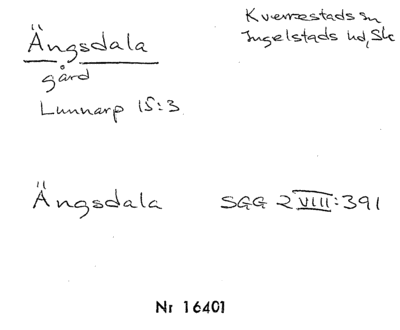 Ängsdala
gård
Lunnarp 15:3
Kverrestads sn
Ingelstads hd, Sk
Ängsdala SGG 2 VIII:391
Nr 16401